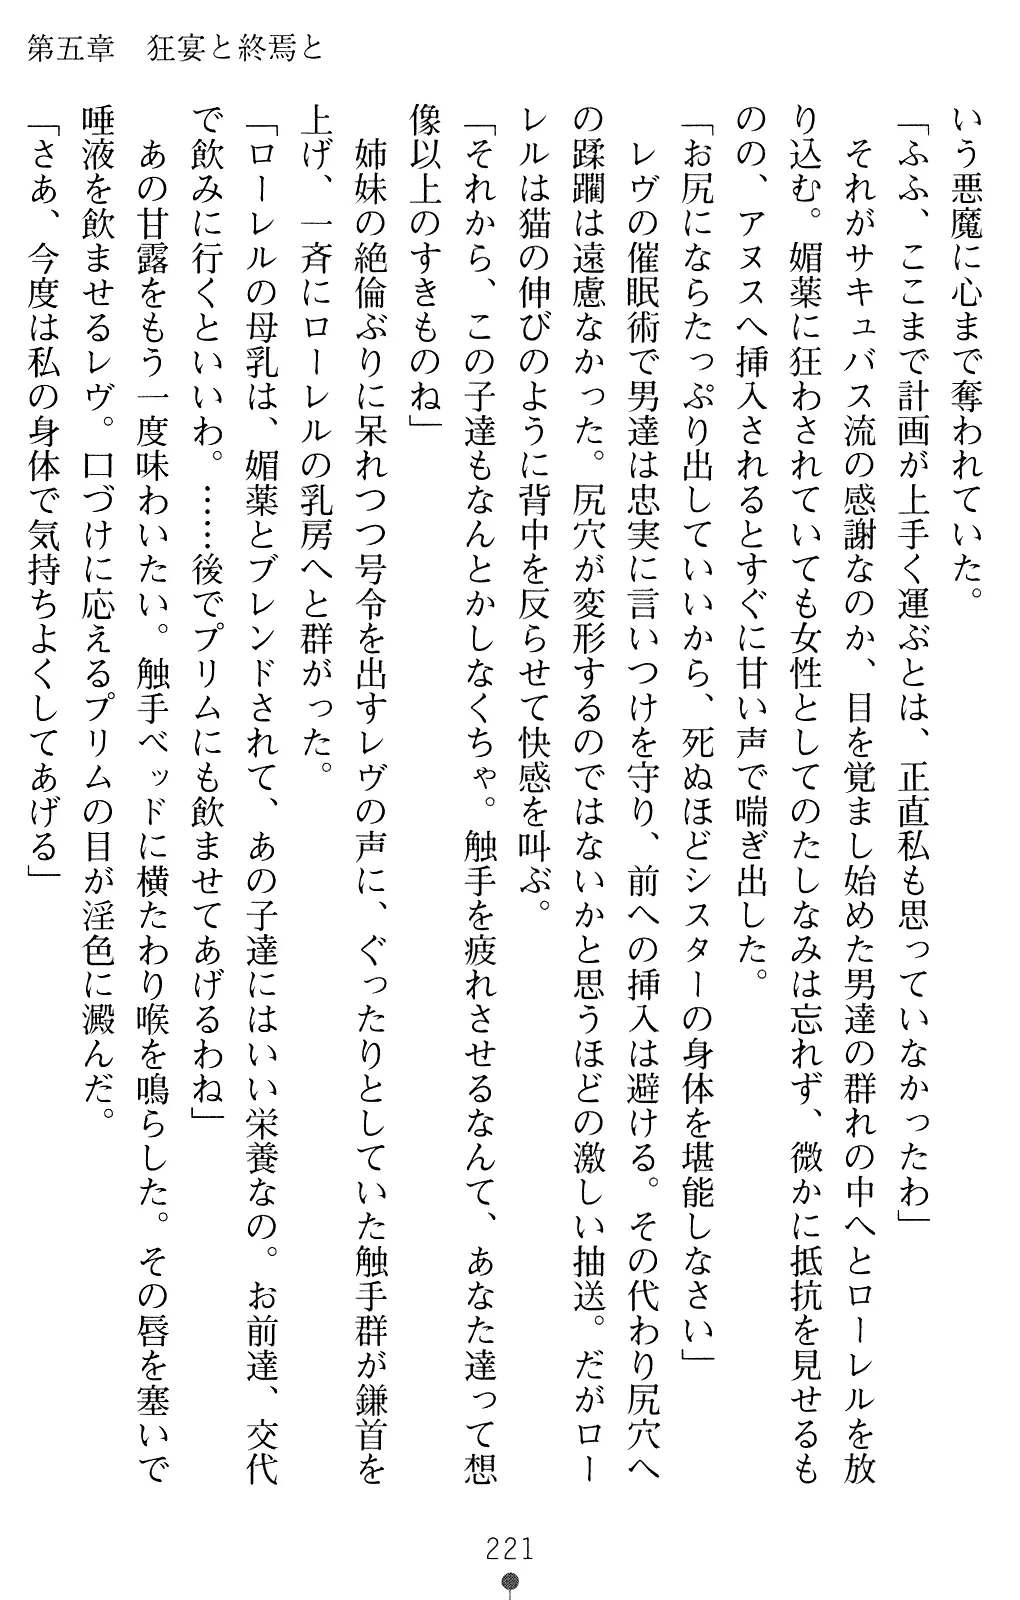 第五章　狂宴と終焉と
いう悪魔に心まで奪われていた。
「ふふ、ここまで計画が上手く運ぶとは、正直私も思っていなかったわ」
　それがサキュバス流の感謝なのか、目を覚まし始めた男達の群れの中へとローレルを放
り込む。媚薬に狂わされていても女性としてのたしなみは忘れず、微かに抵抗を見せるも
のの、アヌスへ挿入されるとすぐに甘い声で喘ぎ出した。
「お尻にならたっぷり出していいから、死ぬほどシスターの身体を堪能しなさい」
　レヴの催眠術で男達は忠実に言いつけを守り、前への挿入は避ける。その代わり尻穴へ
の蹂躙は遠慮なかった。尻穴が変形するのではないかと思うほどの激しい抽送。だがロー
レルは猫の伸びのように背中を反らせて快感を叫ぶ。
「それから、この子達もなんとかしなくちゃ。触手を疲れさせるなんて、あなた達って想
像以上のすきものね」
　姉妹の絶倫ぶりに呆れつつ号令を出すレヴの声に、ぐったりとしていた触手群が鎌首を
上げ、一斉にローレルの乳房へと群がった。
「ローレルの母乳は、媚薬とブレンドされて、あの子達にはいい栄養なの。お前達、交代
で飲みに行くといいわ。……後でプリムにも飲ませてあげるわね」
　あの甘露をもう一度味わいたい。触手ベッドに横たわり喉を鳴らした。その唇を塞いで
唾液を飲ませるレヴ。口づけに応えるプリムの目が淫色に澱んだ。
「さあ、今度は私の身体で気持ちよくしてあげる」
221